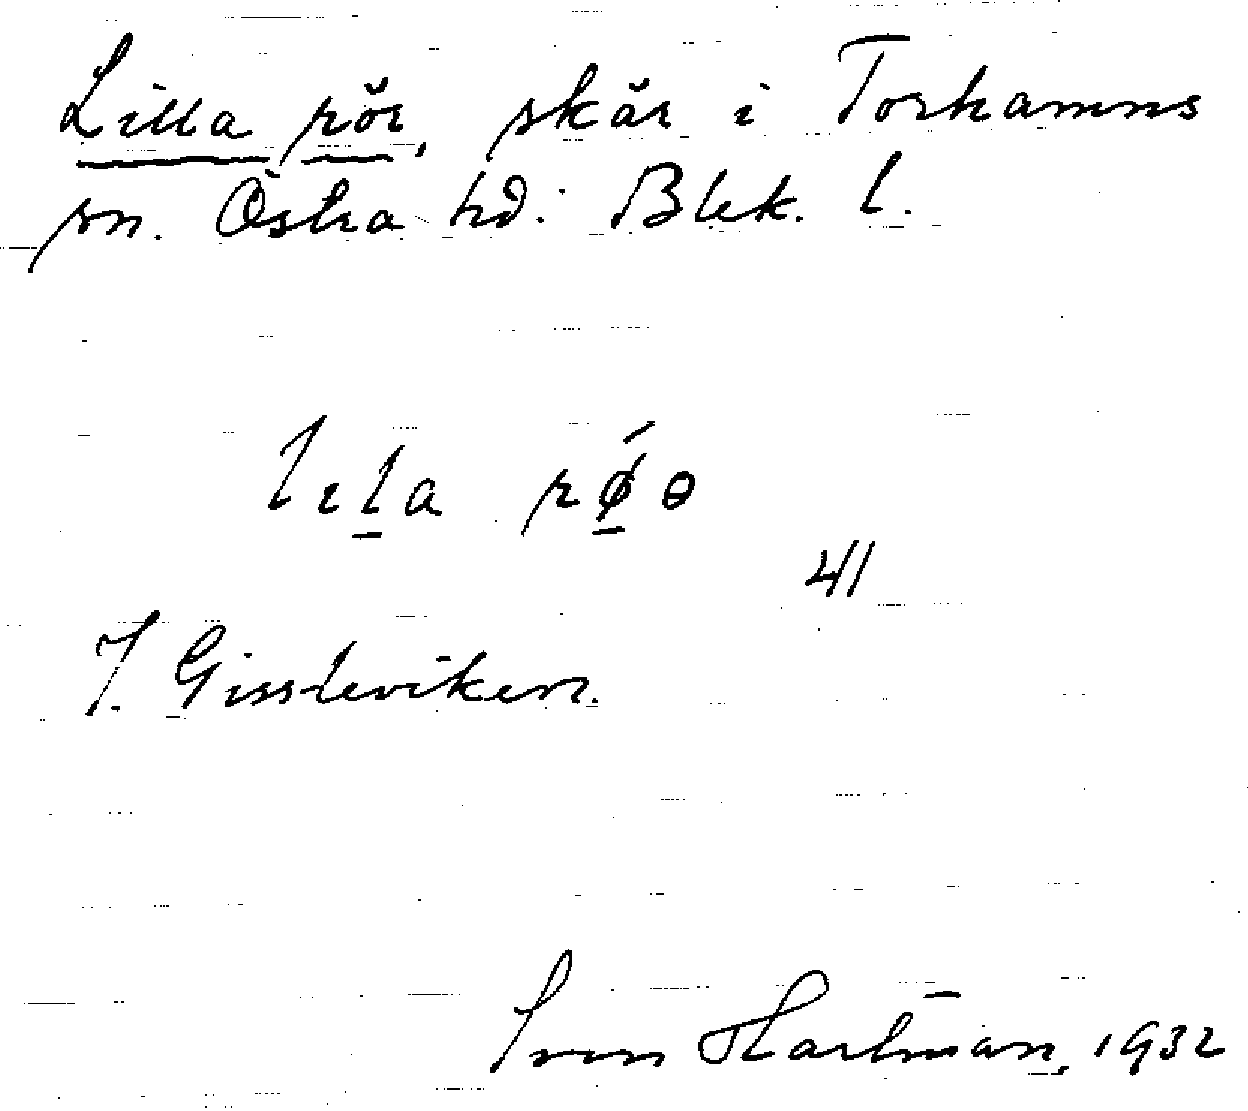 Lilla rör, skär i Torhamns
sn. Östra hd. Blek. l.
lıl̲a rǿ̲ɵ
41
I. Gissleviken.
Sven Hartman, 1932